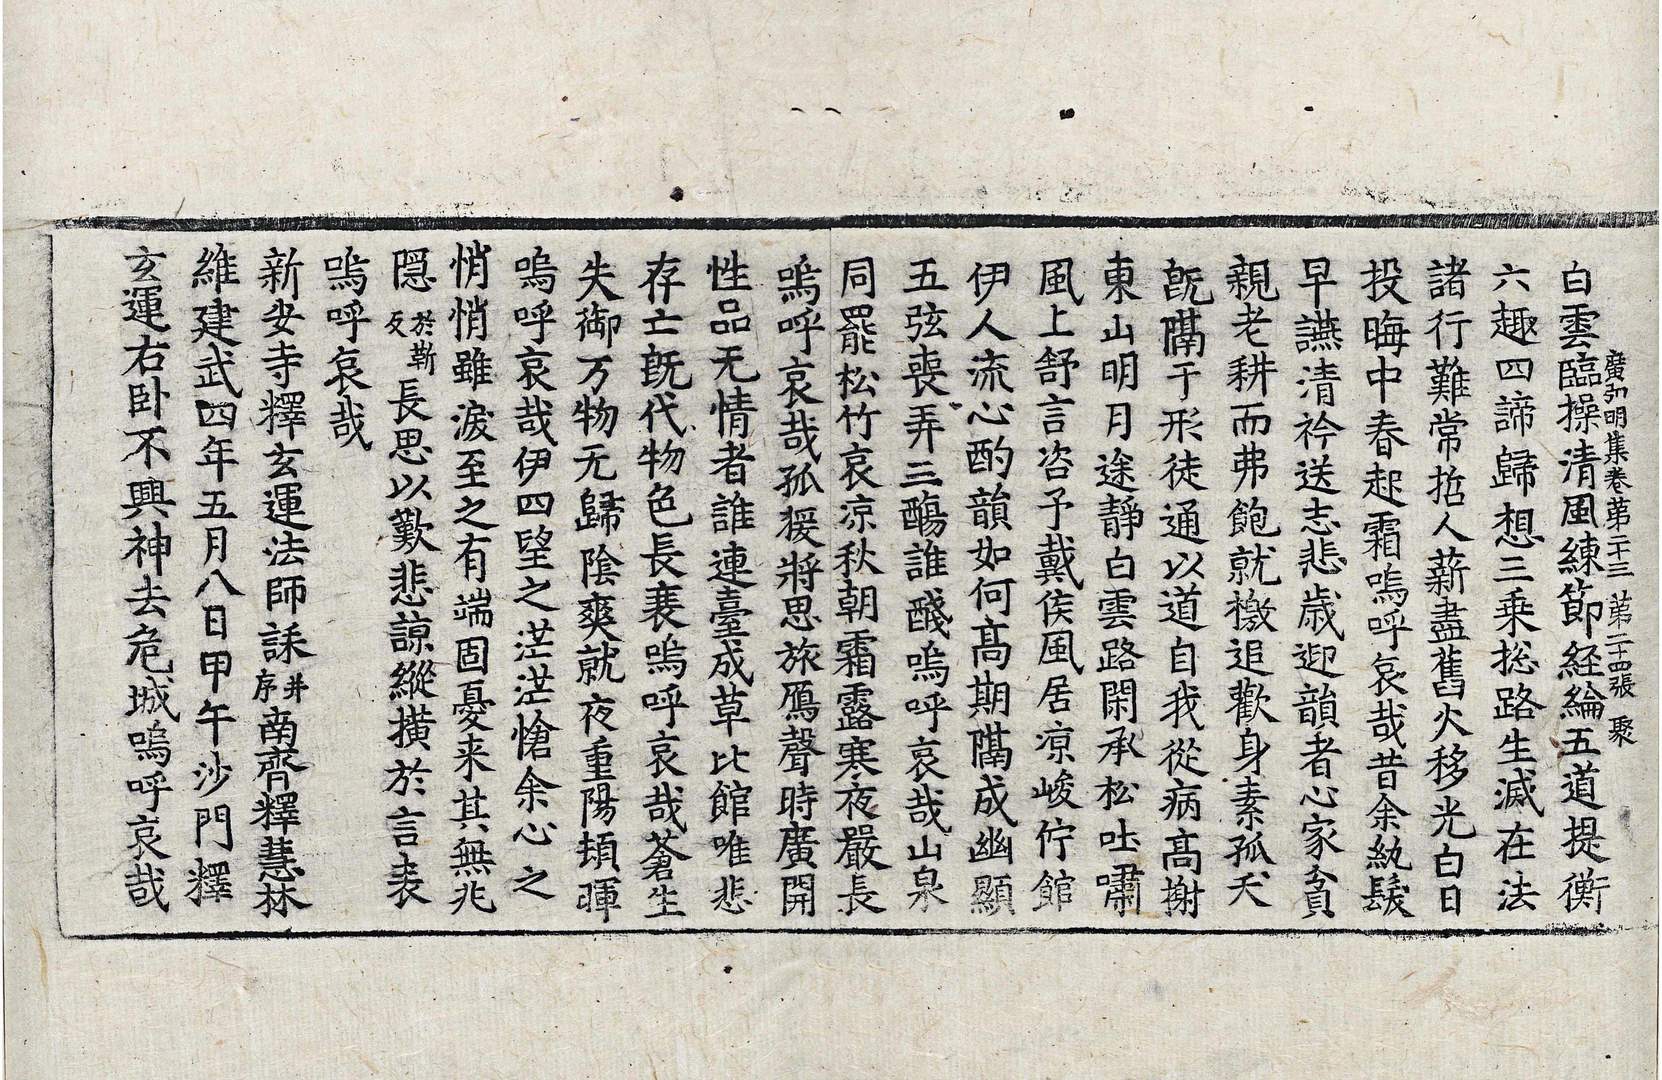 廣弘明集卷第二十三 第二十四張 聚
白雲臨操清風練節経綸五道提衡
六趣四諦歸想三乗捴路生滅在法
諸行難常哲人薪盡舊火移光白日
投晦中春起霜嗚呼哀哉昔余紈髮
早讌清衿送志悲歲迎韻者心家貧
親老耕而弗飽就檄追歡身素孤天
旣隔于形徒通以道自我從病高榭
東山明月途靜白雲路閑承松吐嘯
風上舒言咨予戴侯風居涼峻佇館
伊人流心酌韻如何高期隔成幽顯
五弦喪弄三觴誰醆嗚呼哀哉山泉
同罷松竹哀涼秋朝霜露寒夜嚴長
嗚呼哀哉孤猨將思旅鴈聲時廣開
性品无情者誰連臺成草比館唯悲
存亡旣代物色長襄嗚呼哀哉蒼生
失御万物无歸陰爽就夜重陽頓暉
嗚呼哀哉伊四望之茫茫愴余心之
悄悄雖淚至之有端固憂来其無兆
隱於靳反長思以歎悲諒縱横於言表
嗚呼哀哉
新安寺釋玄運法師誄并序南齊釋慧林
維建武四年五月八日甲午沙門釋
玄運右卧不興神去危城嗚呼哀哉